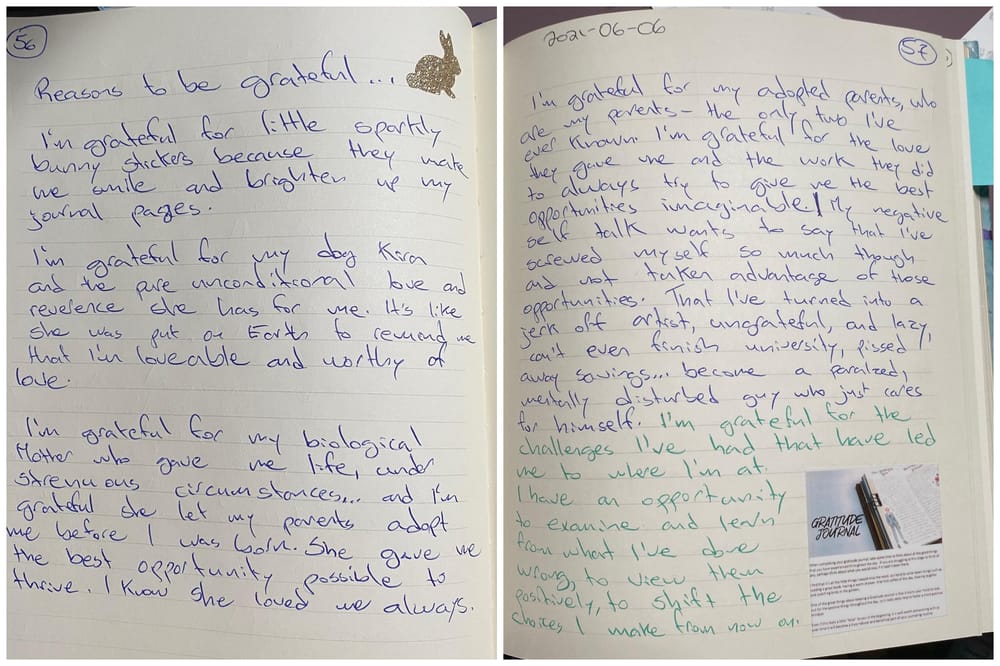 56
Reasons to be grateful...
I'm grateful for little sparkly
bunny stickers because they make
me smile and brighten up my
journal pages.
I'm grateful for my dog Kira
and the pure unconditional love and
reverence she has for me. It's like
she was put on Earth to remind me
that I'm loveable and worthy of
love.
I'm grateful for my biological
Mother who gave me life, under
strenuous circumstances... and I'm
grateful she let my parents adopt
me before I was born. She gave me
the best opportunity possible to
thrive. I know she loved me always.
2021-06-06
57
I'm grateful for my adopted parents, who
are my parents - the only two I've
ever known. I'm grateful for the love
they gave me and the work they did
to always try to give me the best
opportunities imaginable. My negative
self talk wants to say that I've
screwed myself so much though
and not taken advantage of those
opportunities. That I've turned into a
jerk off artist, ungrateful, and lazy,
can't even finish university, pissed
away savings... become a paralized,
mentally disturbed guy who just cares
for himself. I'm grateful for the
challenges I've had that have led
me to where I'm at.
I have an opportunity
to examine and learn
from what I've done
wrong, to view them
positively, to shift the
choices I make from now on.
GRATITUDE
JOURNAL